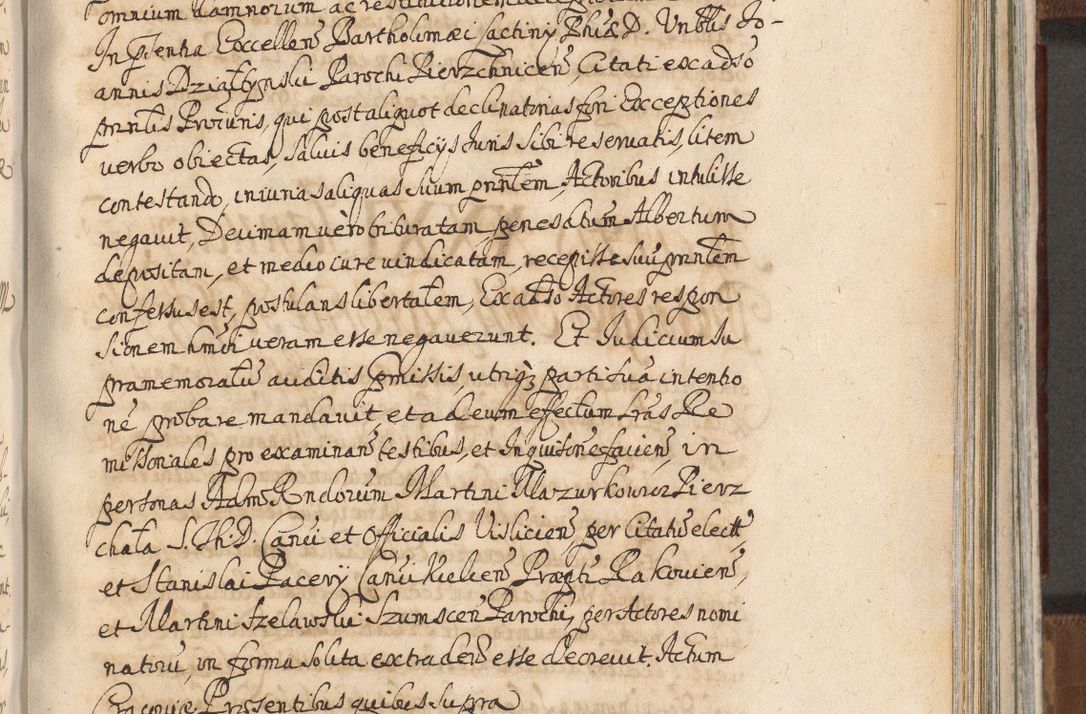 omnium damnorum ac restitutionem
In pñtia Excellenš Bartholimæi Sactiny Phiæ D. Vnblis Jo-
annis Dziatłynski Parochi Pierzchnicen̄, Citati ex adšo
pnñtis Procuris, qui post aliquot declinatorias fori Exceptiones
verbo obiectas, saluis beneficijs Juris sibi reseruatis, litem
contestando, iniurias aliquas suum pnñtem Actoribus intulisse
negauit, Decimam uèro bituratam penes altum Albertum
depositam, et medio iure uindicatam, recepisse suũ pnñtem
confessus est, postulans libertatem, Ex adšo Actores respon
sionem hmõi ueram esse negauerunt. Et Judicium su
pramemoratũ auditis pmissis, utriq₃ parti suã intentio
nē probare mandauit, et ad eum effectum Lrãs Re
missoriales pro examinan̄ testibus, et Inquisitione facien̄, in
personas Admō Rndorum Martini Mazurkouicz Pierz
chała S. Th. D. Canci et Officialis Vislicien̄, per Citatũ elect,
et Stanislai Racery Canci Kielcen̄ Præpti Rakouien̄,
et Martini Szelawski Szumscen̄ Parochi, per Actores nomi
natorũ, in forma solita extraden̄ esse decreuit. Actum
Cracouiæ Præsentibus quibus supra